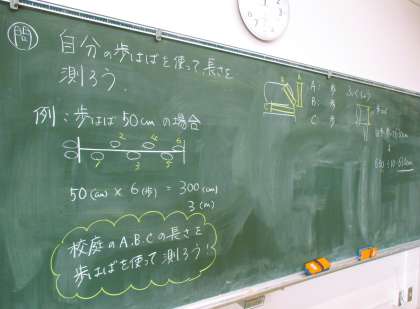 問
自分の歩はばを使って長さを
測ろう.
例:歩はば50cmの場合
2 4 6
1 3 5
50(cm) × 6(歩) = 300(cm)
3(m)
校庭のA.B.Cの長さを
歩はばを使って測ろう!!
A: 歩
B: 歩
C: 歩
ふくしゅう